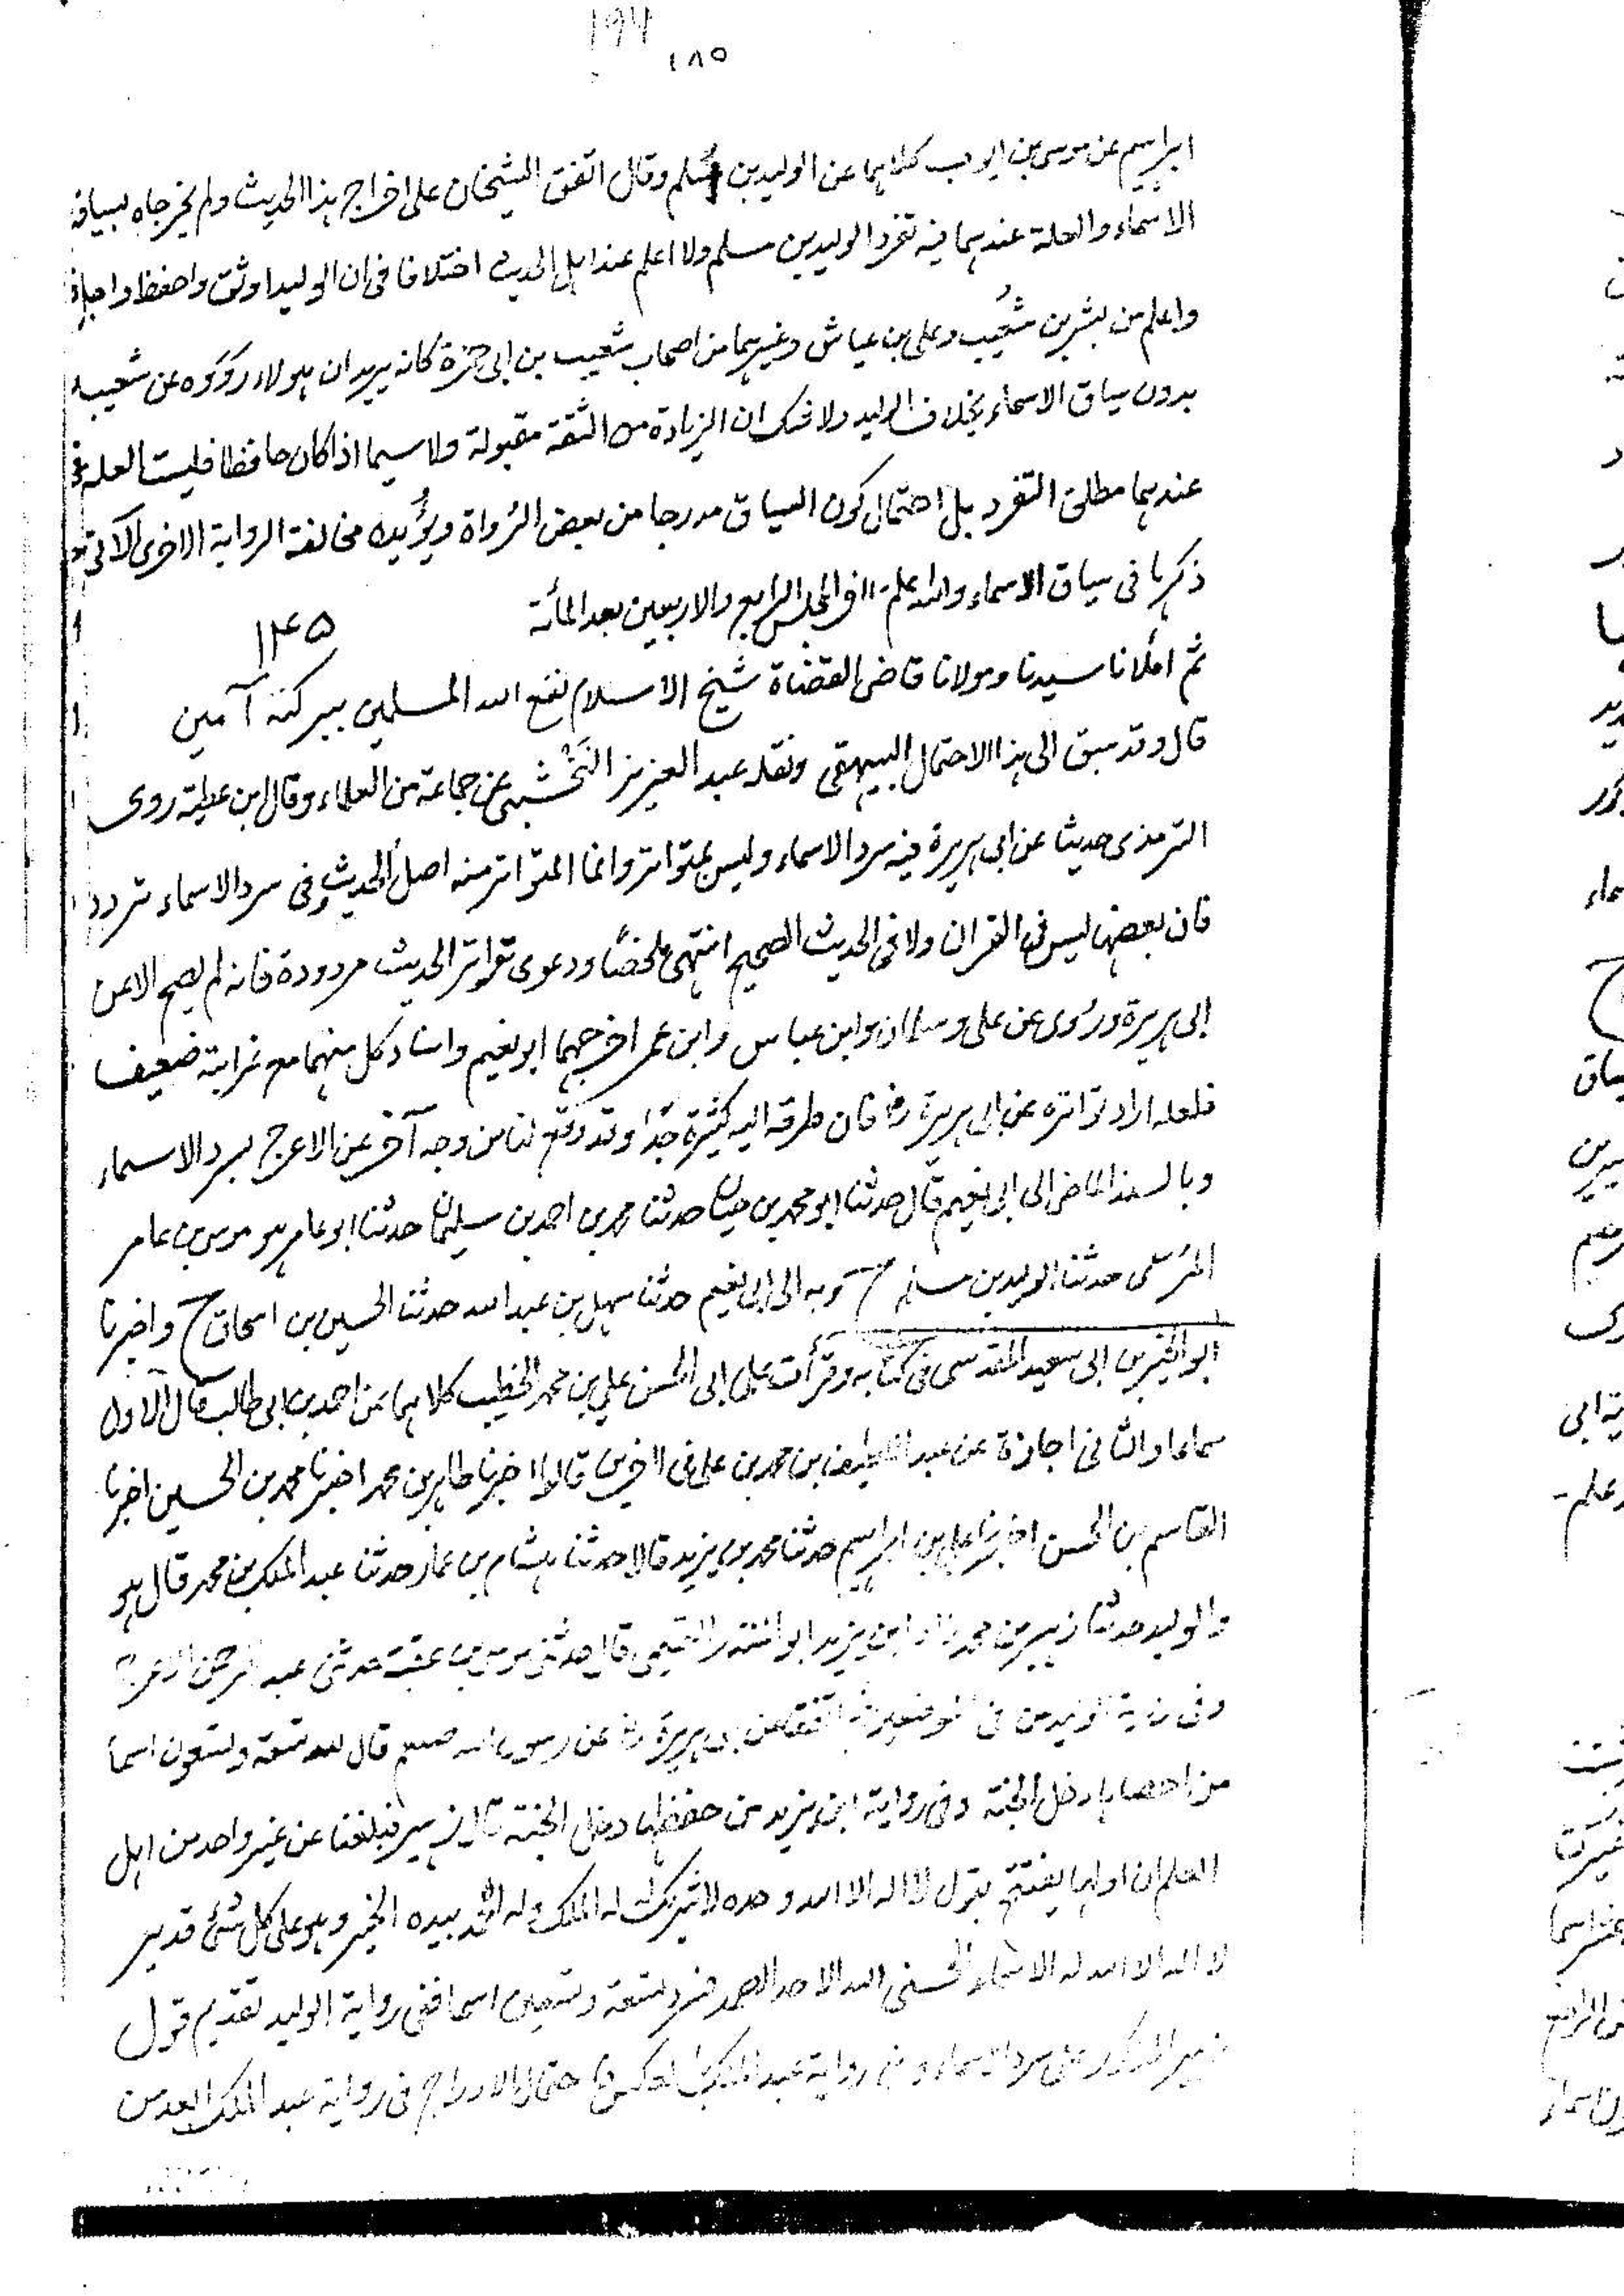 194
١٨٥
ابراهيم عن موسى بن ايوب كلاهما عن الوليد بن مسلم وقال اتفق الشيخان على اخراج هذا الحديث ولم يخرجاه بسياق
الاسماء والعلة عندهما فيه تفرد الوليد بن مسلم ولا اعلم عند اهل الحديث اختلافا فى ان الوليد اوثق واحفظ واجل
واعلم من بشر بن شعيب وعلى بن عياش وغيرهما من اصحاب شعيب بن ابى حمزة كانه يريد ان هولاء رووه عن شعيب
بدون سياق الاسماء بخلاف الوليد ولا شك ان الزيادة من الثقة مقبولة ولا سيما اذا كان حافظا فليست العلة
عندهما مطلق التفرد بل احتمال كون السياق مدرجا من بعض الرواة ويؤيده مخالفة الرواية الاخرى الآتى
ذكرها فى سياق الاسماء والله اعلم - اخر المجلس الرابع والاربعين بعد المأئة
١٤٥
ثم املانا سيدنا ومولانا قاضى القضاة شيخ الاسلام نفع الله المسلمين ببركته آمين
قال وقد سبق الى هذا الاحتمال البيهقى ونقله عبد العزيز النَخْشَبى عن جماعة من العلماء وقال ابن عطية روى
الترمذى حديثا عن ابى هريرة فيه سرد الاسماء وليس بمتواتر وانما المتواتر منه اصل الحديث وفى سرد الاسماء تردد
فان بعضها ليس فى القران ولا فى الحديث الصحيح انتهى ملخصًا ودعوى تواتر الحديث مردودة فانه لم يصح الا عن
ابى هريرة وروى عن على وسلمان وابن عباس وابن عمر اخرجهما ابو نعيم واسناد كل منهما مع غرابته ضعيف
فلعله اراد تواتره عن ابى هريرة رض فان طرقه اليه كثيرة جدًا وقد وقع لنا من وجه آخر عن الاعرج بسرد الاسماء
وبالسند الماضى الى ابى نعيم قال حدثنا ابو محمد بن حيان حدثنا محمد بن احمد بن سليمان حدثنا ابو عامر هو موسى بن عامر
المرى حدثنا الوليد بن مسلم ح وبه الى ابى نعيم حدثنا سهل بن عبد الله حدثنا الحسين بن اسحاق ح واخبرنا
ابو الخير بن ابى سعيد المقدسى فى كتابه وقرأت على ابى الحسن على بن محمد الخطيب كلاهما عن احمد بن ابى طالب قال الاول
سماعا والثانى اجازة عن عبد اللطيف بن محمد بن على فى اخرين قالوا اخبرنا طاهر بن محمد اخبرنا محمد بن الحسين اخبرنا
القاسم بن الحسن اخبرنا على بن ابراهيم حدثنا محمد بن يزيد قالا حدثنا هشام بن عمار حدثنا عبد الملك بن محمد قال هو
والوليد حدثنا زهير بن محمد زاد ابن يزيد ابو المنذر التميمى قال حدثنى موسى بن عقبة حدثنى عبد الرحمن الاعرج
وفى رواية الوليد عن فى الموضعين ثم اتفقا عن ابى هريرة رض عن رسول الله صلعم قال لله تسعة وتسعون اسما
من احصاها دخل الجنة وفى رواية ابن يزيد من حفظها دخل الجنة قال زهير فبلغنا عن غير واحد من اهل
العلم ان اولها يفتتح بقول لا اله الا الله وحده لا شريك له له الملك وله الحمد بيده الخير وهو على كل شئ قدير
لا اله الا الله له الاسماء الحسنى الله الاحد الصمد فسرد تسعة وتسعين اسما ففى رواية الوليد تقديم قول
زهير المذكور على سرد الاسماء وفى رواية عبد الملك بالعكس احتمال الادراج فى رواية عبد الملك ابعد من